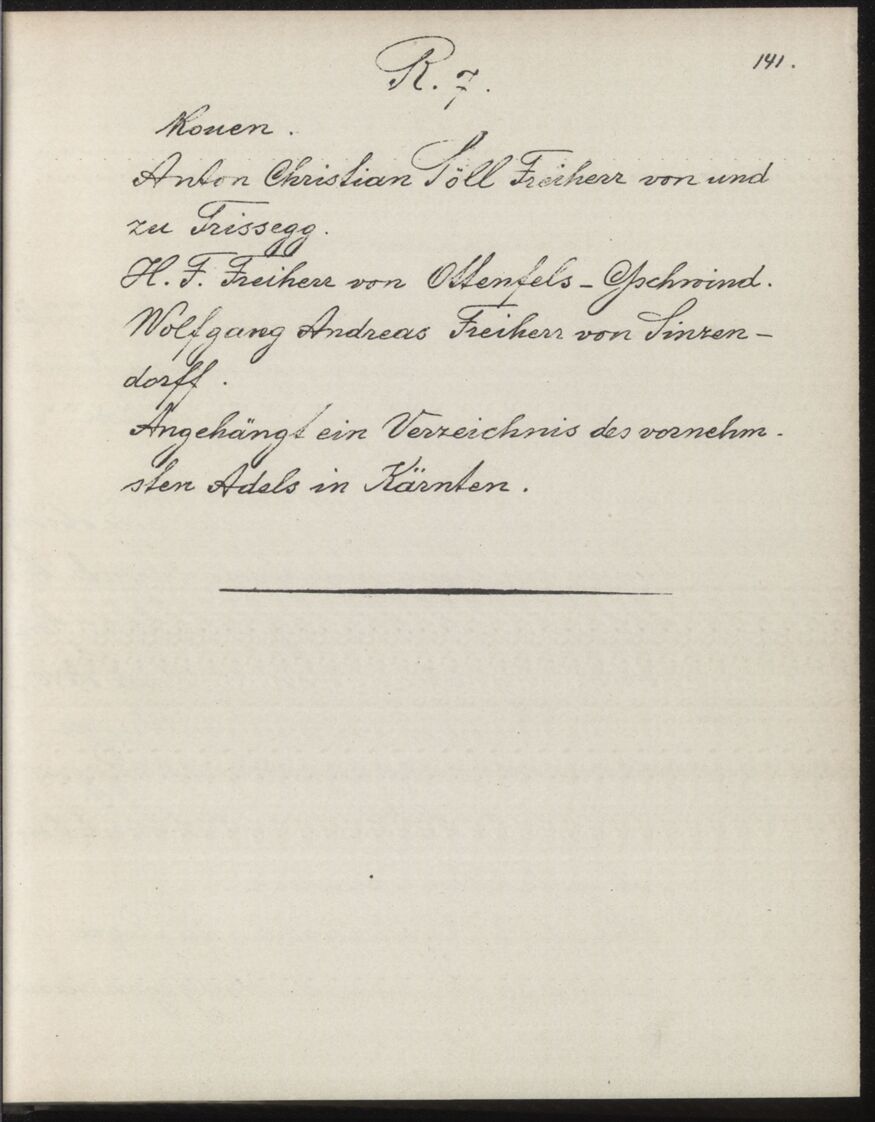 141.
R. 7.
kouen.
Anton Christian Söll Freiherr von und
zu Trissegg.
H. F. Freiherr von Ottenfels - Gschwind.
Wolfgang Andreas Freiherr von Sinzen-
dorff.
Angehängt ein Verzeichnis des vornehm-
sten Adels in Kärnten.